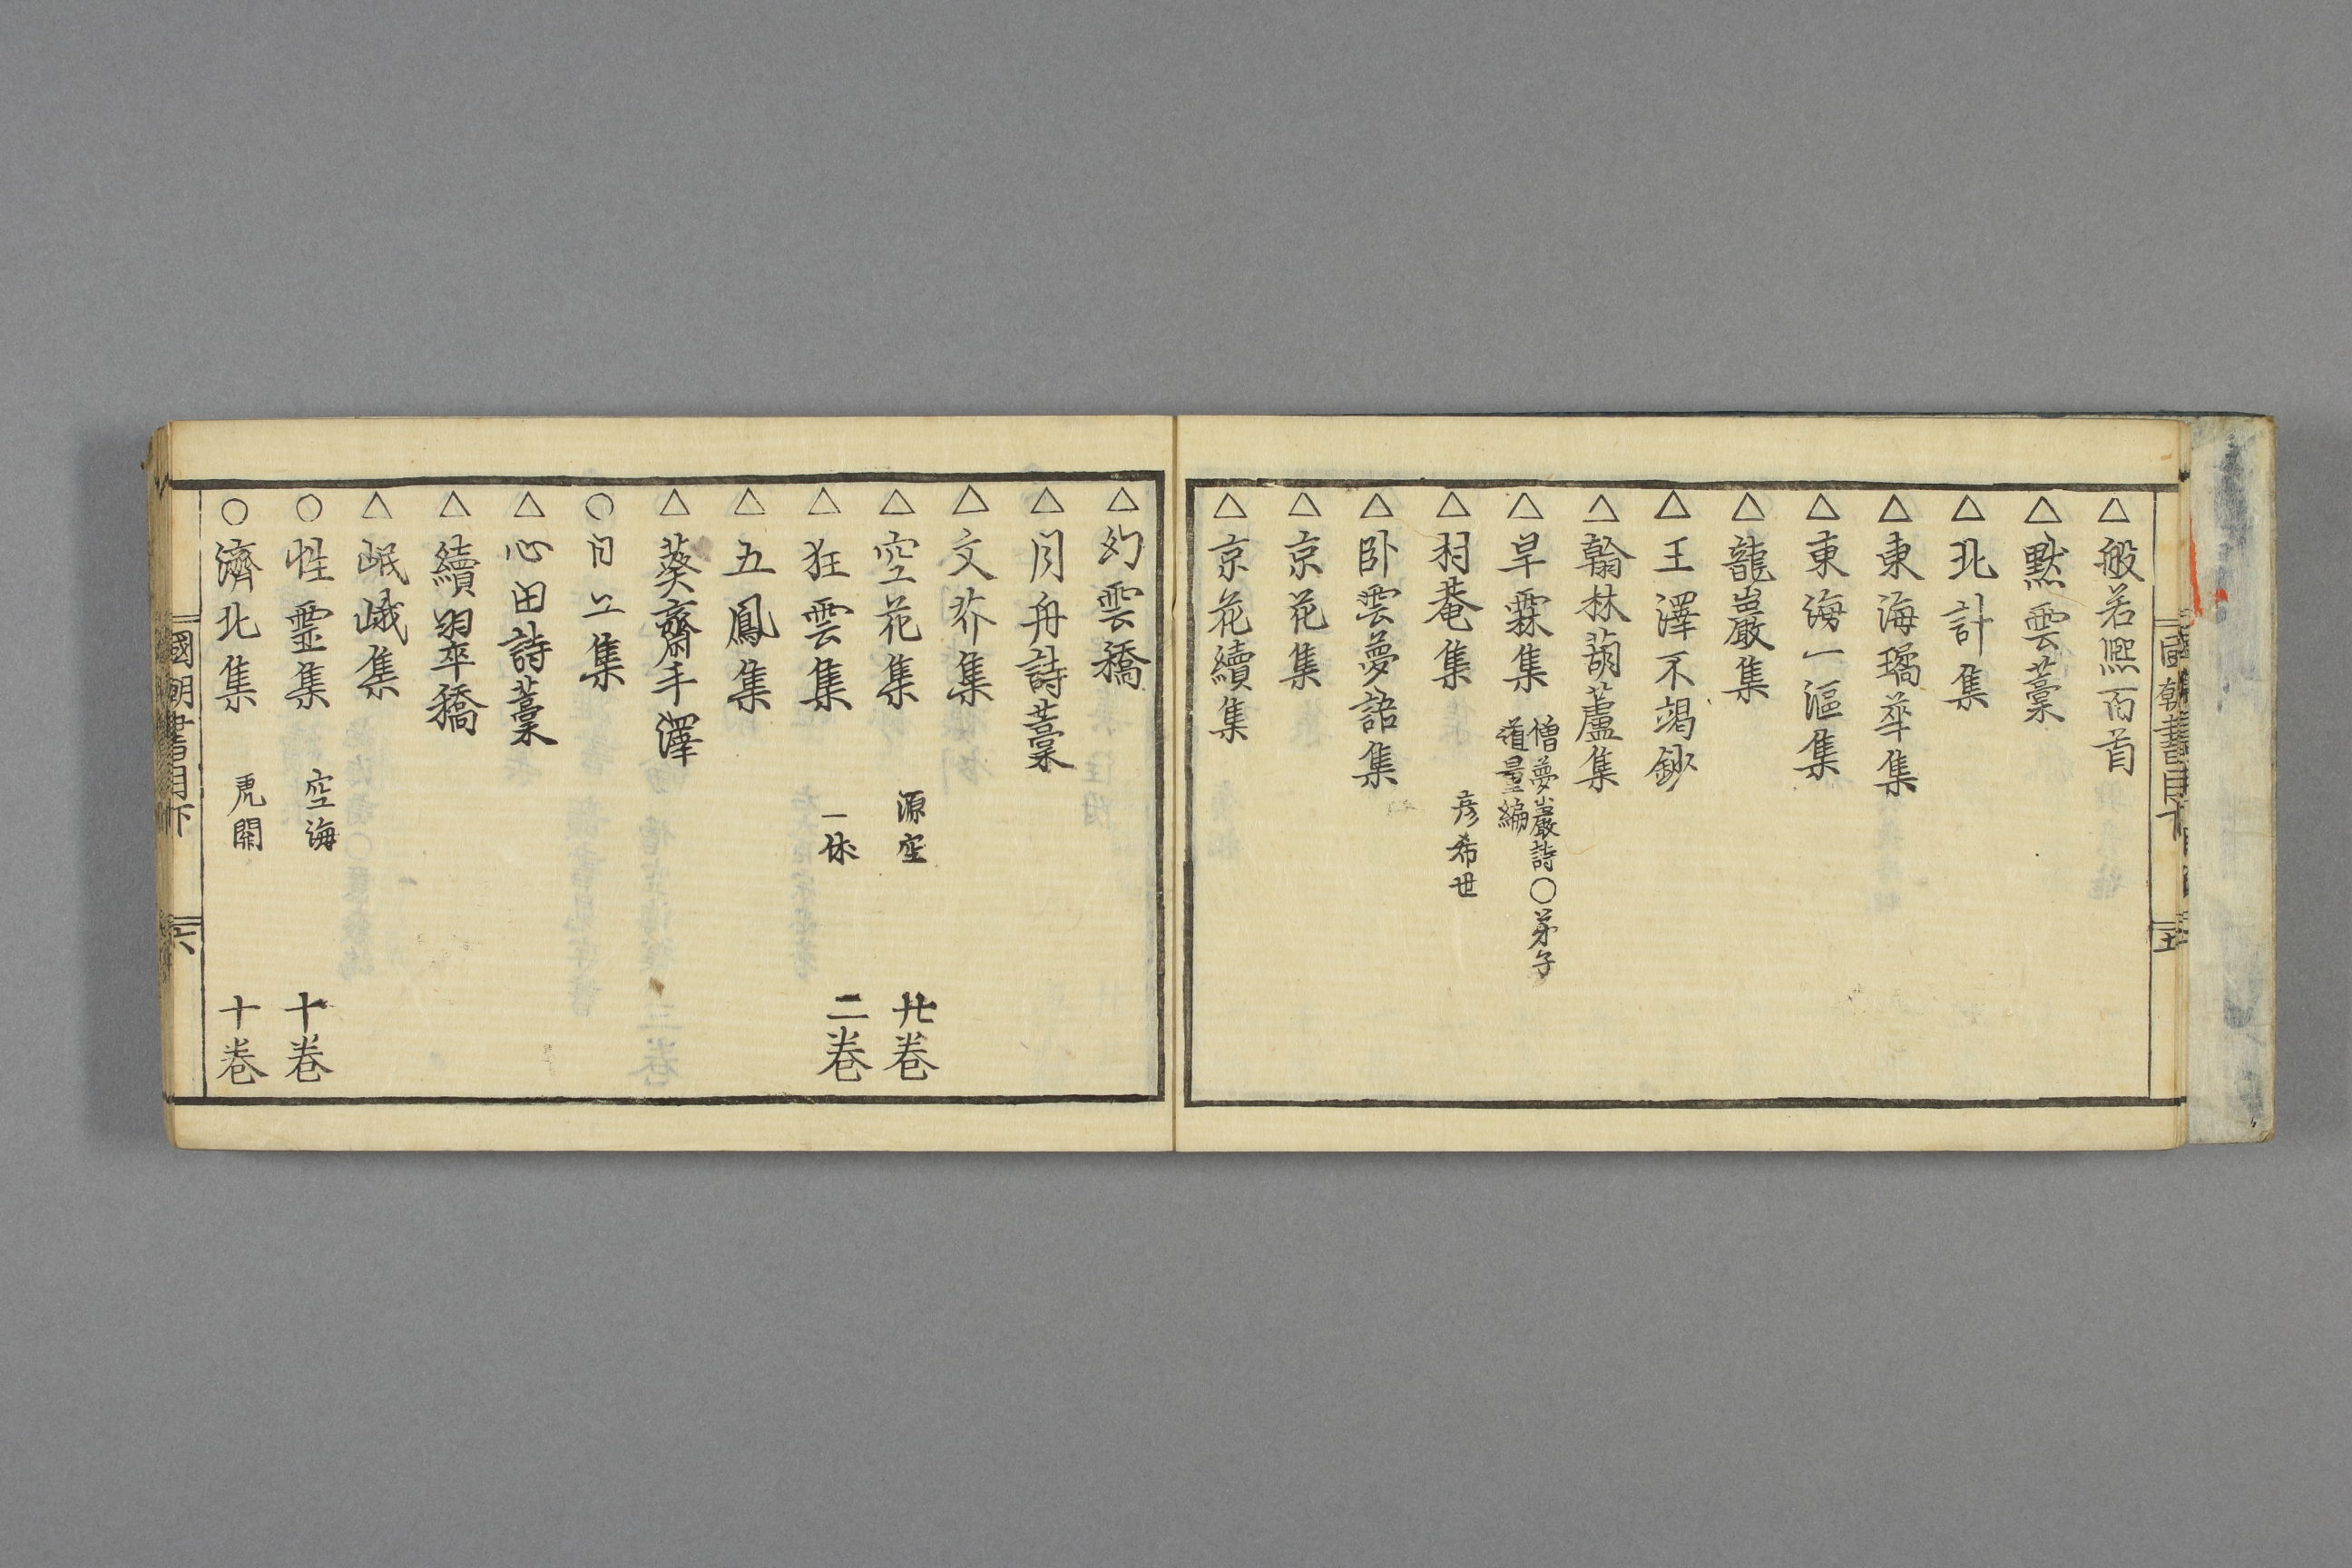 △般若熈百首
△黙雲藁
△北計集
△東海璚華集
△東海一漚集
△龍巖集
△王澤不竭鈔
△翰林葫蘆集
△旱霖集 僧夢巖詩○弟子道量編
△村菴集 彦希世
△卧雲夢語集
△京花集
△京花續集
△幻雲稿
△月舟詩藁
△文芥集
△空花集 源空 廿卷
△狂雲集 一休 二卷
△五鳳集
△葵齋手澤
△心田詩藁
△續翠稿
△岷峨集
○性霊集 空海 十卷
○濟北集 虎関 十卷
國朝書目下
六